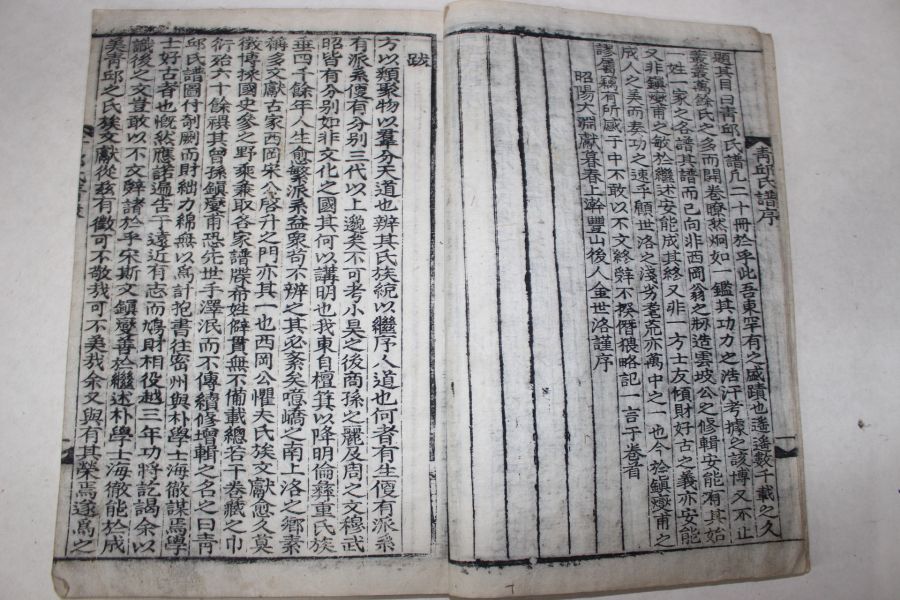 靑邱氏譜序
題其目曰靑邱氏譜凡二十冊於乎此吾東罕有之盛蹟也遥遥數千載之久
叢叢萬餘氏之多而開卷瞭然炯如一鑑其功力之浩汗考據之該博又不止
一姓一家之各譜其譜而已向非西岡翁之刱造雲坡公之修輯安能有其始
又非鎭爕甫之敏於繼述安能成其終又非一方士友傾財好古之義亦安能
成人之美而奏功之速乎顧世洛之淺劣耄荒亦萬中之一也今於鎭爕甫之
謬屬竊有所感于中不敢以不文終辝不揆僭猥略記一言于卷首
昭陽大淵獻暮春上澣豐山後人金世洛謹序
跋
方以類聚物以羣分天道也辨其氏族統以繼序人道也何者有生便有派系
有派系便有分别三代以上邈矣不可考小昊之後商孫之麗及周之文穆武
昭皆有分别如非文化之國其何以講明也我東自檀箕以降明倫彝重氏族
垂四千餘年人生愈繁派系益衆苟不辨之其必紊矣噫嶠之南上洛之鄉素
稱多文獻古家西岡宋公啓升之門亦其一也西岡公惧夫氏族文獻愈久莫
徵博採國史參之野乘兼取各家譜牒希姓僻貫無不備載總若干卷藏之巾
衍殆六十餘禩其曾孫鎭爕甫恐先世手澤泯而不傳續修增輯之名之曰靑
邱氏譜圖付剞劂而財絀力綿無以爲計抱書往密州與朴學士海徹謀焉學
士好古者也慨然應諾遍告于遠近有志而鳩財相役越三年功將訖謁余以
識後之文豈敢以不文辤諸於乎宋斯文鎭爕善於繼述朴學士海徹能於成
美靑邱之氏族文獻從玆有徵可不敬我可不美我余又與有其榮焉遂爲之